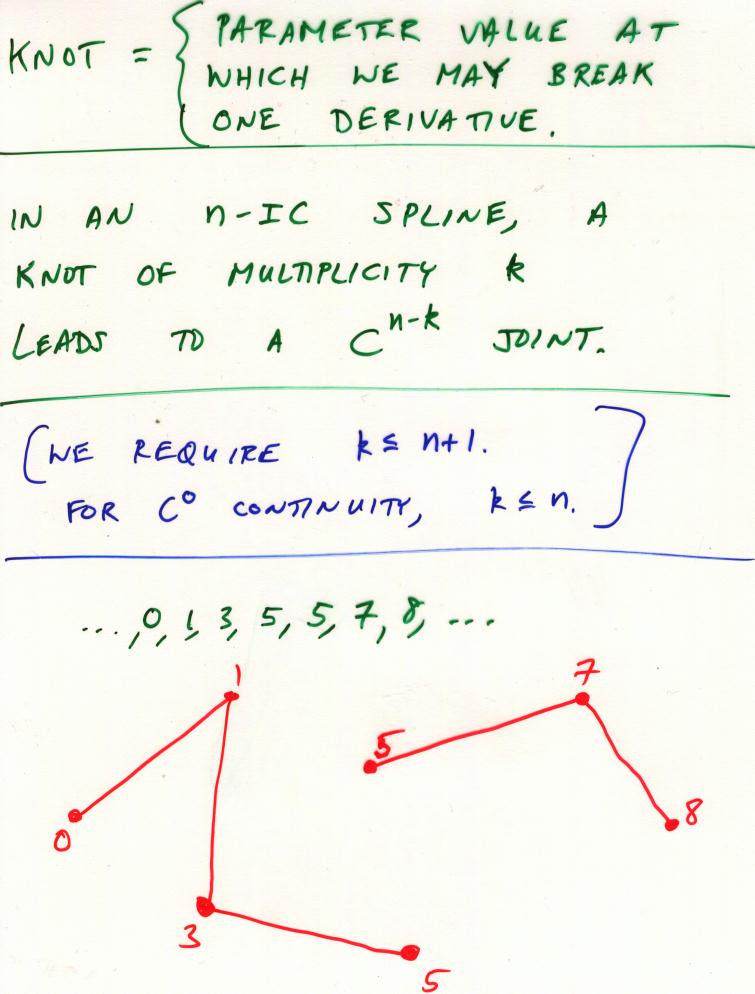 KNOT = { PARAMETER VALUE AT
WHICH WE MAY BREAK
ONE DERIVATIVE.
IN AN n-IC SPLINE, A
KNOT OF MULTIPLICITY k
LEADS TO A C^{n-k} JOINT.
[WE REQUIRE k ≤ n+1.
FOR C⁰ CONTINUITY, k ≤ n.]
..., 0, 1, 3, 5, 5, 7, 8, ...
1
7
5
0
8
3
5